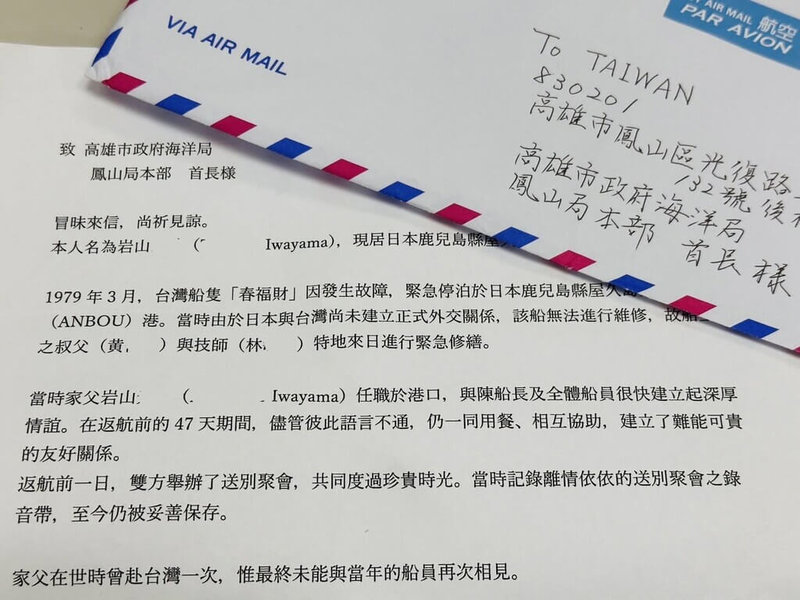 VIA AIR MAIL
AIR MAIL 航空
PAR AVION
To TAIWAN
830201
高雄市鳳山區光復路
132號後
高雄市政府海洋局
鳳山局本部 首長 様
致 高雄市政府海洋局
鳳山局本部 首長様
冒昧來信，尚祈見諒。
本人名為岩山 （ Iwayama），現居日本鹿兒島縣屋
1979 年 3 月，台灣船隻「春福財」因發生故障，緊急停泊於日本鹿兒島縣屋久島
（ANBOU）港。當時由於日本與台灣尚未建立正式外交關係，該船無法進行維修，故船
之叔父（黃 ）與技師（林 ）特地來日進行緊急修繕。
當時家父岩山 （ Iwayama）任職於港口，與陳船長及全體船員很快建立起深厚
情誼。在返航前的 47 天期間，儘管彼此語言不通，仍一同用餐、相互協助，建立了難能可貴
的友好關係。
返航前一日，雙方舉辦了送別聚會，共同度過珍貴時光。當時記錄離情依依的送別聚會之錄
音帶，至今仍被妥善保存。
家父在世時曾赴台灣一次，惟最終未能與當年的船員再次相見。